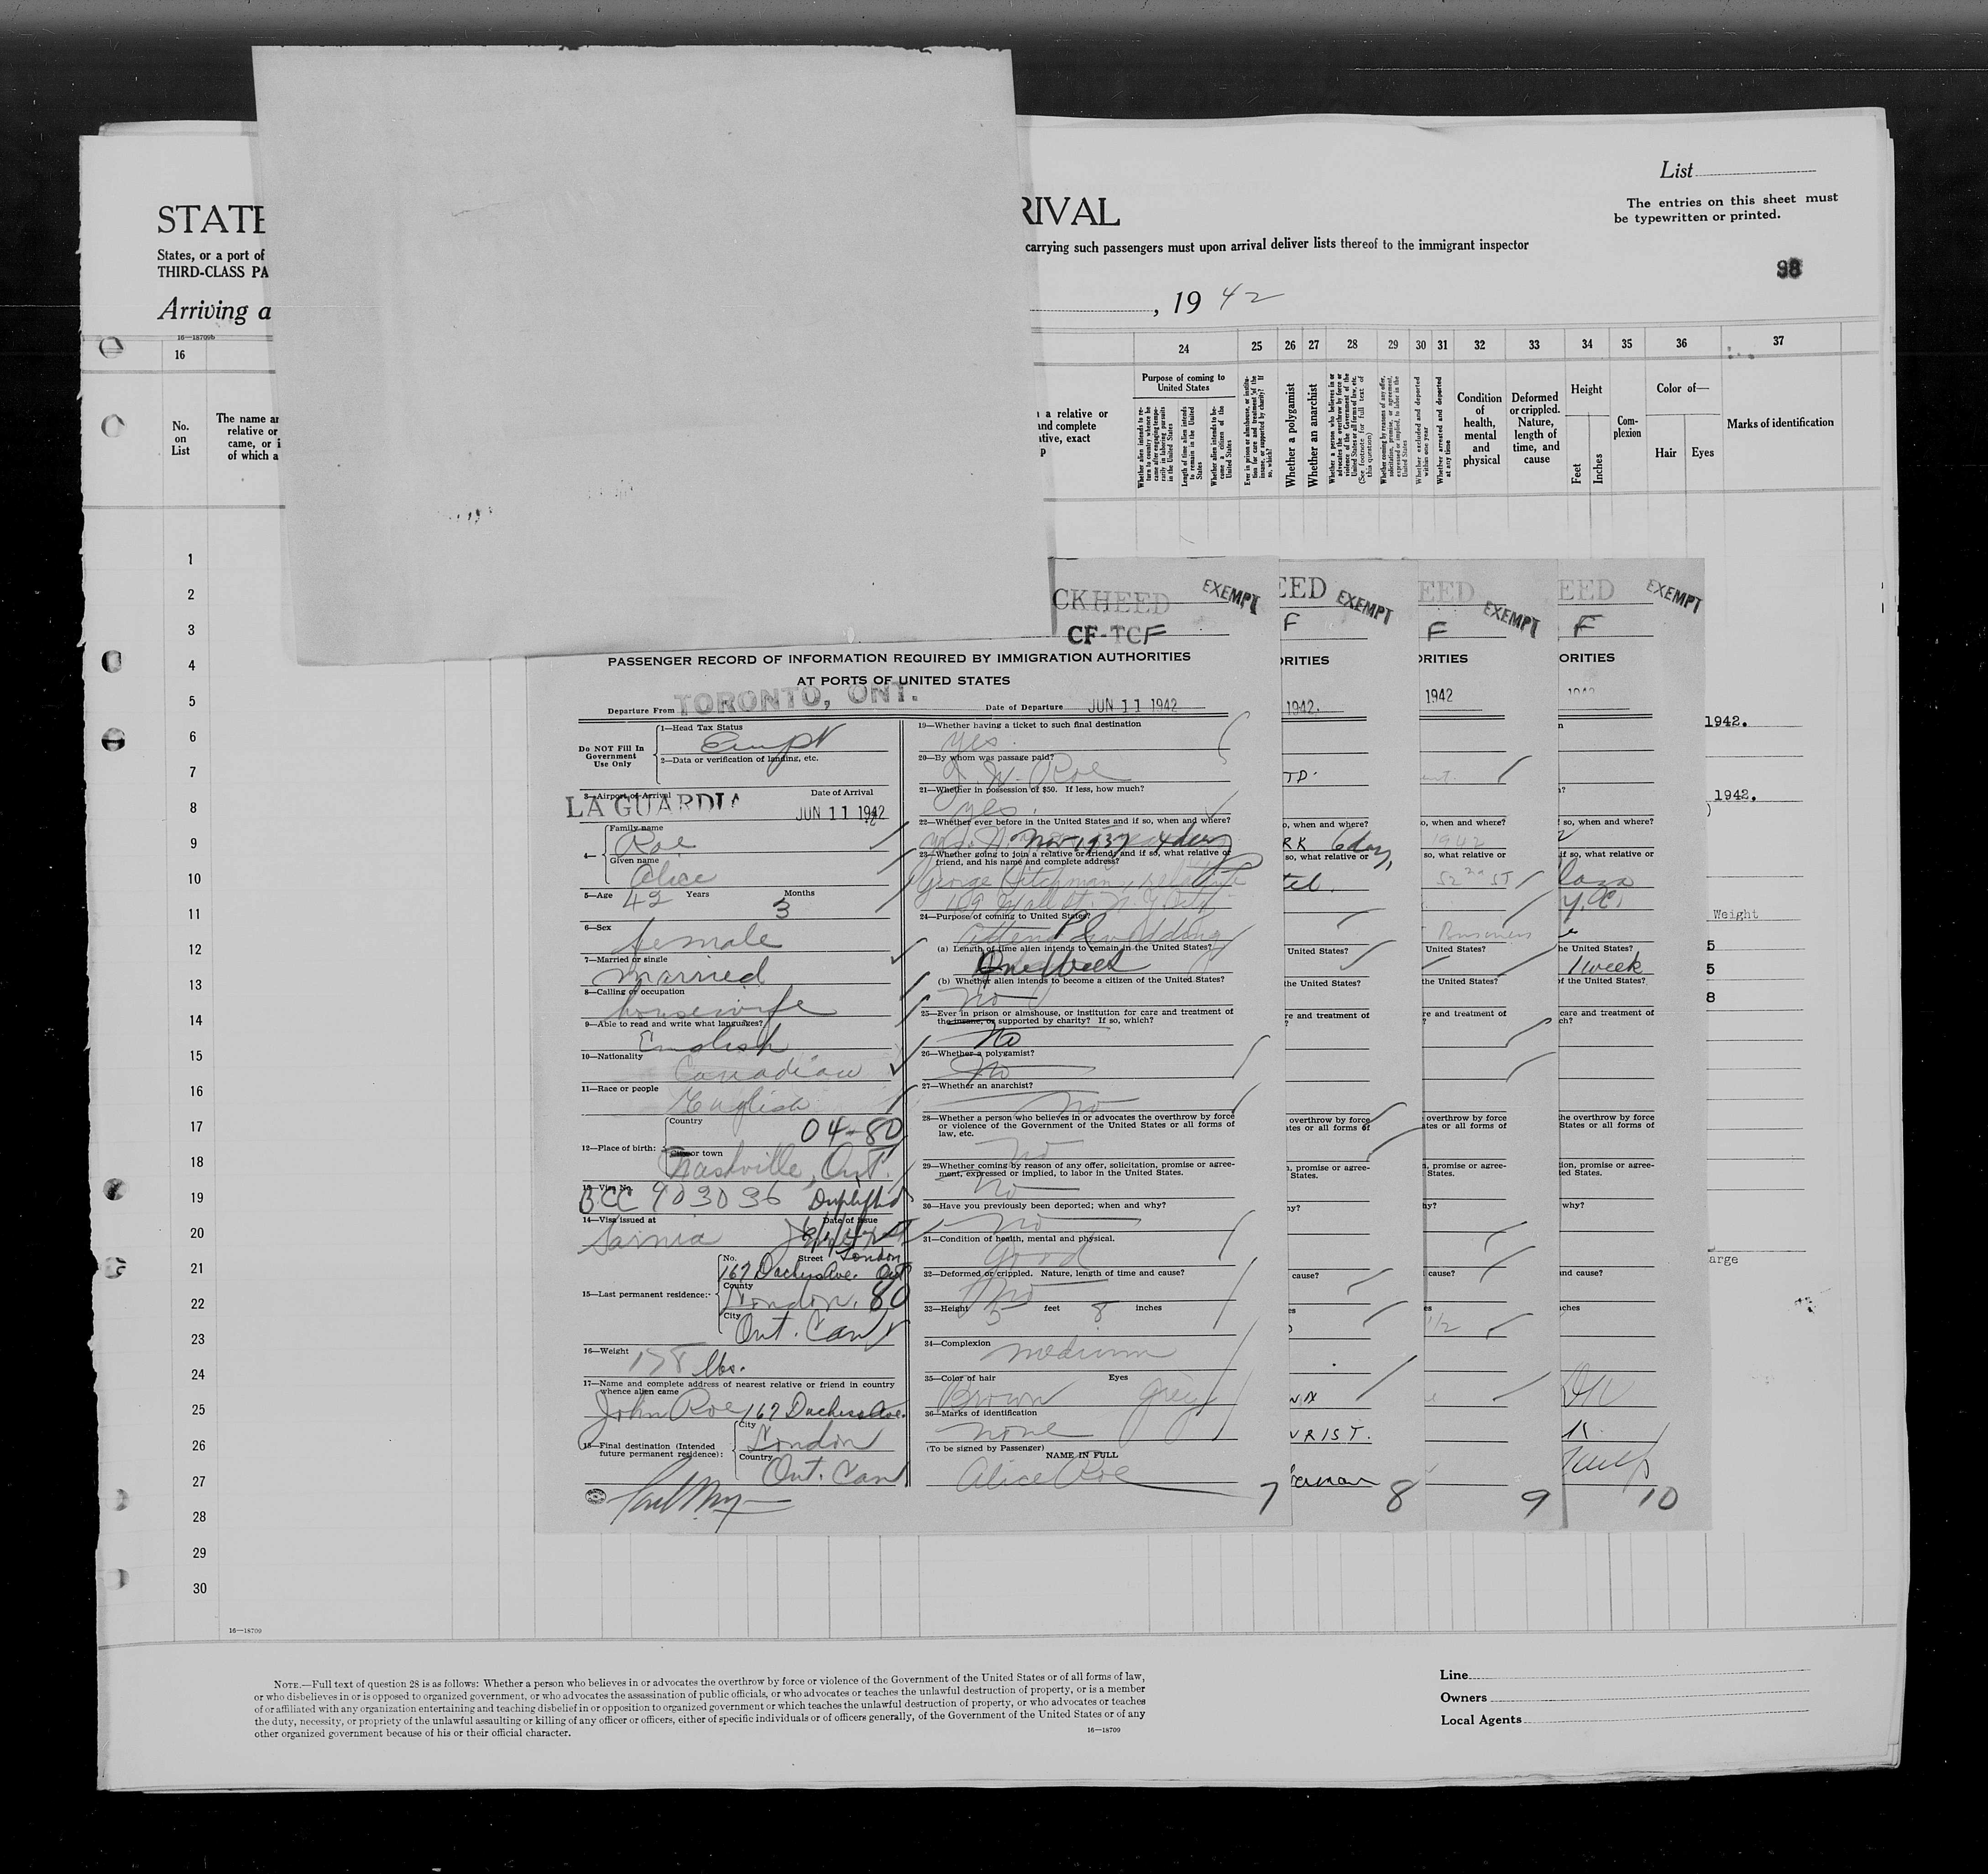 List
The entries on this sheet must
be typewritten or printed.
STATE
RIVAL
States, or a port of
carrying such passengers must upon arrival deliver lists thereof to the immigrant inspector
THIRD-CLASS PA
98
Arriving a
, 19 42
16—18709b
16
24 25 26 27 28 29 30 31 32 33 34 35 36 37
No.
on
List
The name an
relative or
came, or i
of which a
a relative or
and complete
ative, exact
p
Purpose of coming to
United States
Whether alien intends to re-
turn to country whence he
came after engaging tempo-
rarily in laboring pursuits
in the United States
Length of time alien intends
to remain in the United
States
Whether alien intends to be-
come a citizen of the
United States
Ever in prison or almshouse, or institu-
tion for care and treatment of the
insane, or supported by charity? If
so, which?
Whether a polygamist
Whether an anarchist
Whether a person who believes in or
advocates the overthrow by force or
violence of the Government of the
United States or all forms of law, etc.
(See footnote for full text of
this question)
Whether coming by reasons of any offer,
solicitation, promise, or agreement,
expressed or implied, to labor in the
United States
Whether excluded and deported
within one year
Whether arrested and deported
at any time
Condition
of
health,
mental
and
physical
Deformed
or crippled.
Nature,
length of
time, and
cause
Height
Feet
Inches
Com-
plexion
Color of—
Hair
Eyes
Marks of identification
1
2
3
4
5
6
7
8
9
10
11
12
13
14
15
16
17
18
19
20
21
22
23
24
25
26
27
28
29
30
CKHEED
EXEMPT
CF-TCF
PASSENGER RECORD OF INFORMATION REQUIRED BY IMMIGRATION AUTHORITIES
AT PORTS OF UNITED STATES
Departure From TORONTO, ONT.
Date of Departure JUN 11 1942
Do NOT Fill In
Government
Use Only
1—Head Tax Status
2—Data or verification of landing, etc.
3—Airport of Arrival
Date of Arrival
LA GUARDIA
JUN 11 1942
4—
Family name
Roe
Given name
Alice
5—Age 42 Years Months 3
6—Sex
female
7—Married or single
married
8—Calling or occupation
housewife
9—Able to read and write what languages?
English
10—Nationality
Canadian
11—Race or people
English
12—Place of birth:
Country
04-80
City or town
Nashville, Ont.
13—Visa No.
BCC 903096
14—Visa issued at
Date of Issue
Sarnia
15—Last permanent residence:
No. Street London
167 Duchess Ave. Ont
County
London. 80
City
Ont. Can
16—Weight
178 lbs.
17—Name and complete address of nearest relative or friend in country
whence alien came
John Roe 167 Duchess Ave.
18—Final destination (Intended
future permanent residence):
City
London
Country
Ont. Can
19—Whether having a ticket to such final destination
yes.
20—By whom was passage paid?
J. W. Roe
21—Whether in possession of $50. If less, how much?
yes.
22—Whether ever before in the United States and if so, when and where?
Nov 1937 4 days
23—Whether going to join a relative or friend, and if so, what relative or
friend, and his name and complete address?
George
24—Purpose of coming to United States?
Attend wedding
(a) Length of time alien intends to remain in the United States?
One Week
(b) Whether alien intends to become a citizen of the United States?
no
25—Ever in prison or almshouse, or institution for care and treatment of
the insane, or supported by charity? If so, which?
No
26—Whether a polygamist?
No
27—Whether an anarchist?
no
28—Whether a person who believes in or advocates the overthrow by force
or violence of the Government of the United States or all forms of
law, etc.
no
29—Whether coming by reason of any offer, solicitation, promise or agree-
ment, expressed or implied, to labor in the United States.
no
30—Have you previously been deported; when and why?
no
31—Condition of health, mental and physical.
good
32—Deformed or crippled. Nature, length of time and cause?
No
33—Height 5 feet 8 inches
34—Complexion
medium
35—Color of hair Eyes
Brown Grey
36—Marks of identification
none
(To be signed by Passenger)
NAME IN FULL
Alice Roe
7
EED EXEMPT
F
ORITIES
1942.
TD.
o, when and where?
RK 6 days
so, what relative or
tel.
United States?
the United States?
re and treatment of
?
overthrow by force
ates or all forms of
, promise or agree-
States.
hy?
cause?
es
VRIST.
8
EED EXEMPT
F
ORITIES
1942
o, when and where?
1942
so, what relative or
52nd ST
Business
United States?
the United States?
re and treatment of
?
overthrow by force
ates or all forms of
, promise or agree-
States.
hy?
cause?
es
1/2
9
EED EXEMPT
F
ORITIES
1942
n
?
so, when and where?
if so, what relative or
laza
y.C.
he United States?
1 week
of the United States?
care and treatment of
ch?
he overthrow by force
States or all forms of
ion, promise or agree-
ted States.
why?
and cause?
nches
10
1942.
1942.
)
Weight
5
5
8
arge
16—18709
NOTE.—Full text of question 28 is as follows: Whether a person who believes in or advocates the overthrow by force or violence of the Government of the United States or of all forms of law,
or who disbelieves in or is opposed to organized government, or who advocates the assassination of public officials, or who advocates or teaches the unlawful destruction of property, or is a member
of or affiliated with any organization entertaining and teaching disbelief in or opposition to organized government or which teaches the unlawful destruction of property, or who advocates or teaches
the duty, necessity, or propriety of the unlawful assaulting or killing of any officer or officers, either of specific individuals or of officers generally, of the Government of the United States or of any
other organized government because of his or their official character.
16—18709
Line
Owners
Local Agents